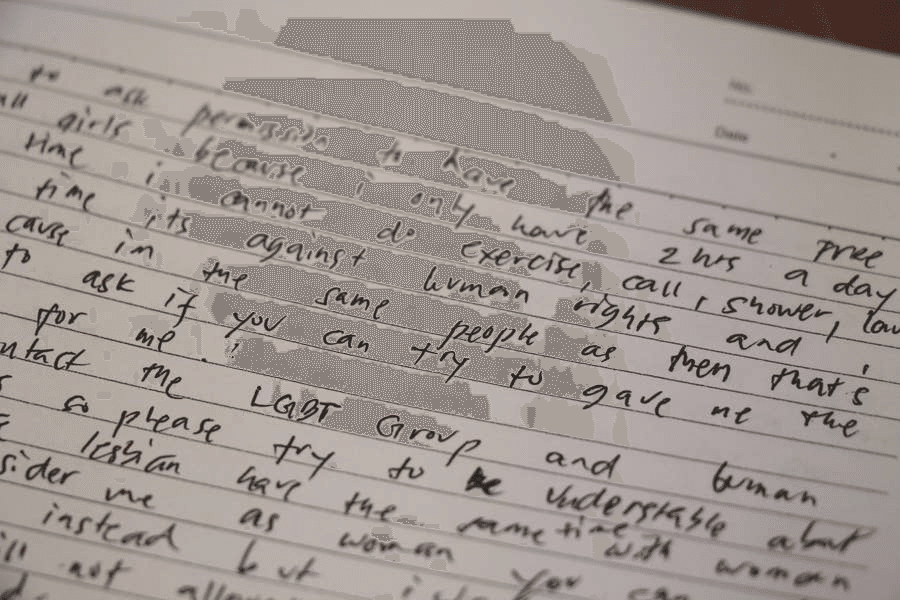 to ask permission to have the same free
all girls because i only have 2 hrs a day
time i cannot do exercise, call, shower, law
time its against human rights and i
cause im the same people as then that's
to ask if you can try to gave me the
for me. i
ntact the LGBT Group and human
so please try to be understable about
lesbian have the same time with woman
sider me as woman you can
instead but
ill not